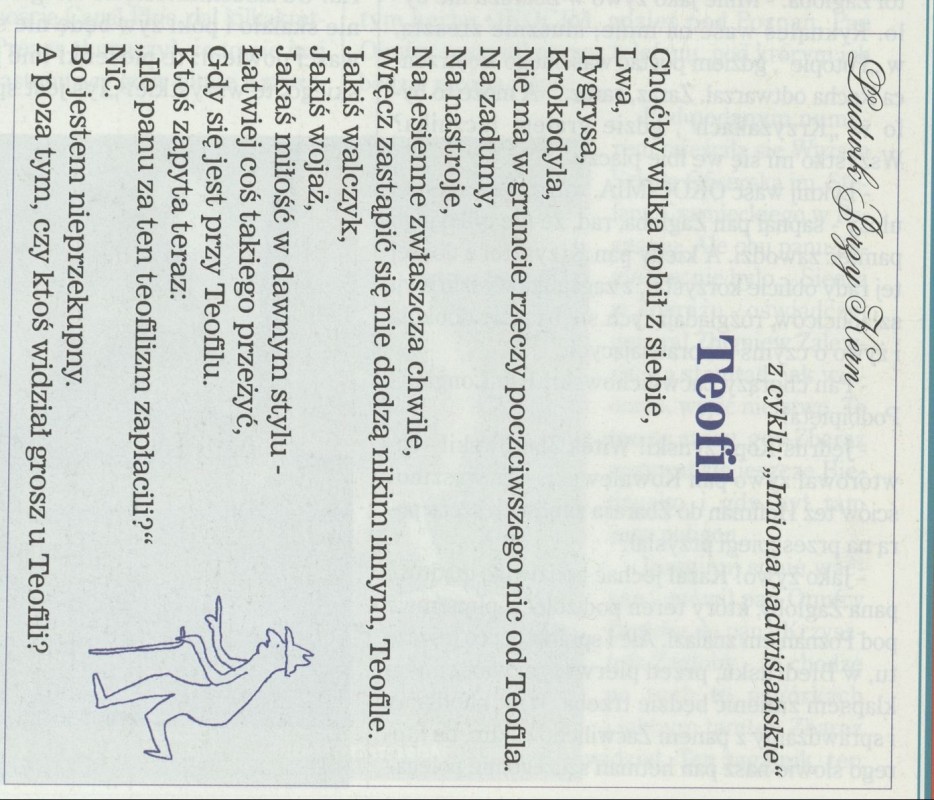 Leszek Jerzy Stern
z cyklu: „Imiona nadwiślańskie“
Teofil
Choćby wilka robił z siebie,
Lwa,
Tygrysa,
Krokodyla,
Nie ma w gruncie rzeczy poczciwszego nic od Teofila.
Na zadumy,
Na nastroje,
Na jesienne zwłaszcza chwile
Wręcz zastąpić się nie dadzą nikim innym, Teofile.
Jakiś walczyk,
Jakiś wojaż,
Jakaś miłość w dawnym stylu -
Łatwiej coś takiego przeżyć,
Gdy się jest przy Teofilu.
Ktoś zapyta teraz:
„Ile panu za ten teofilizm zapłacili?“
Nic.
Bo jestem nieprzekupny.
I poza tym, czy ktoś widział grosz u Teofili?